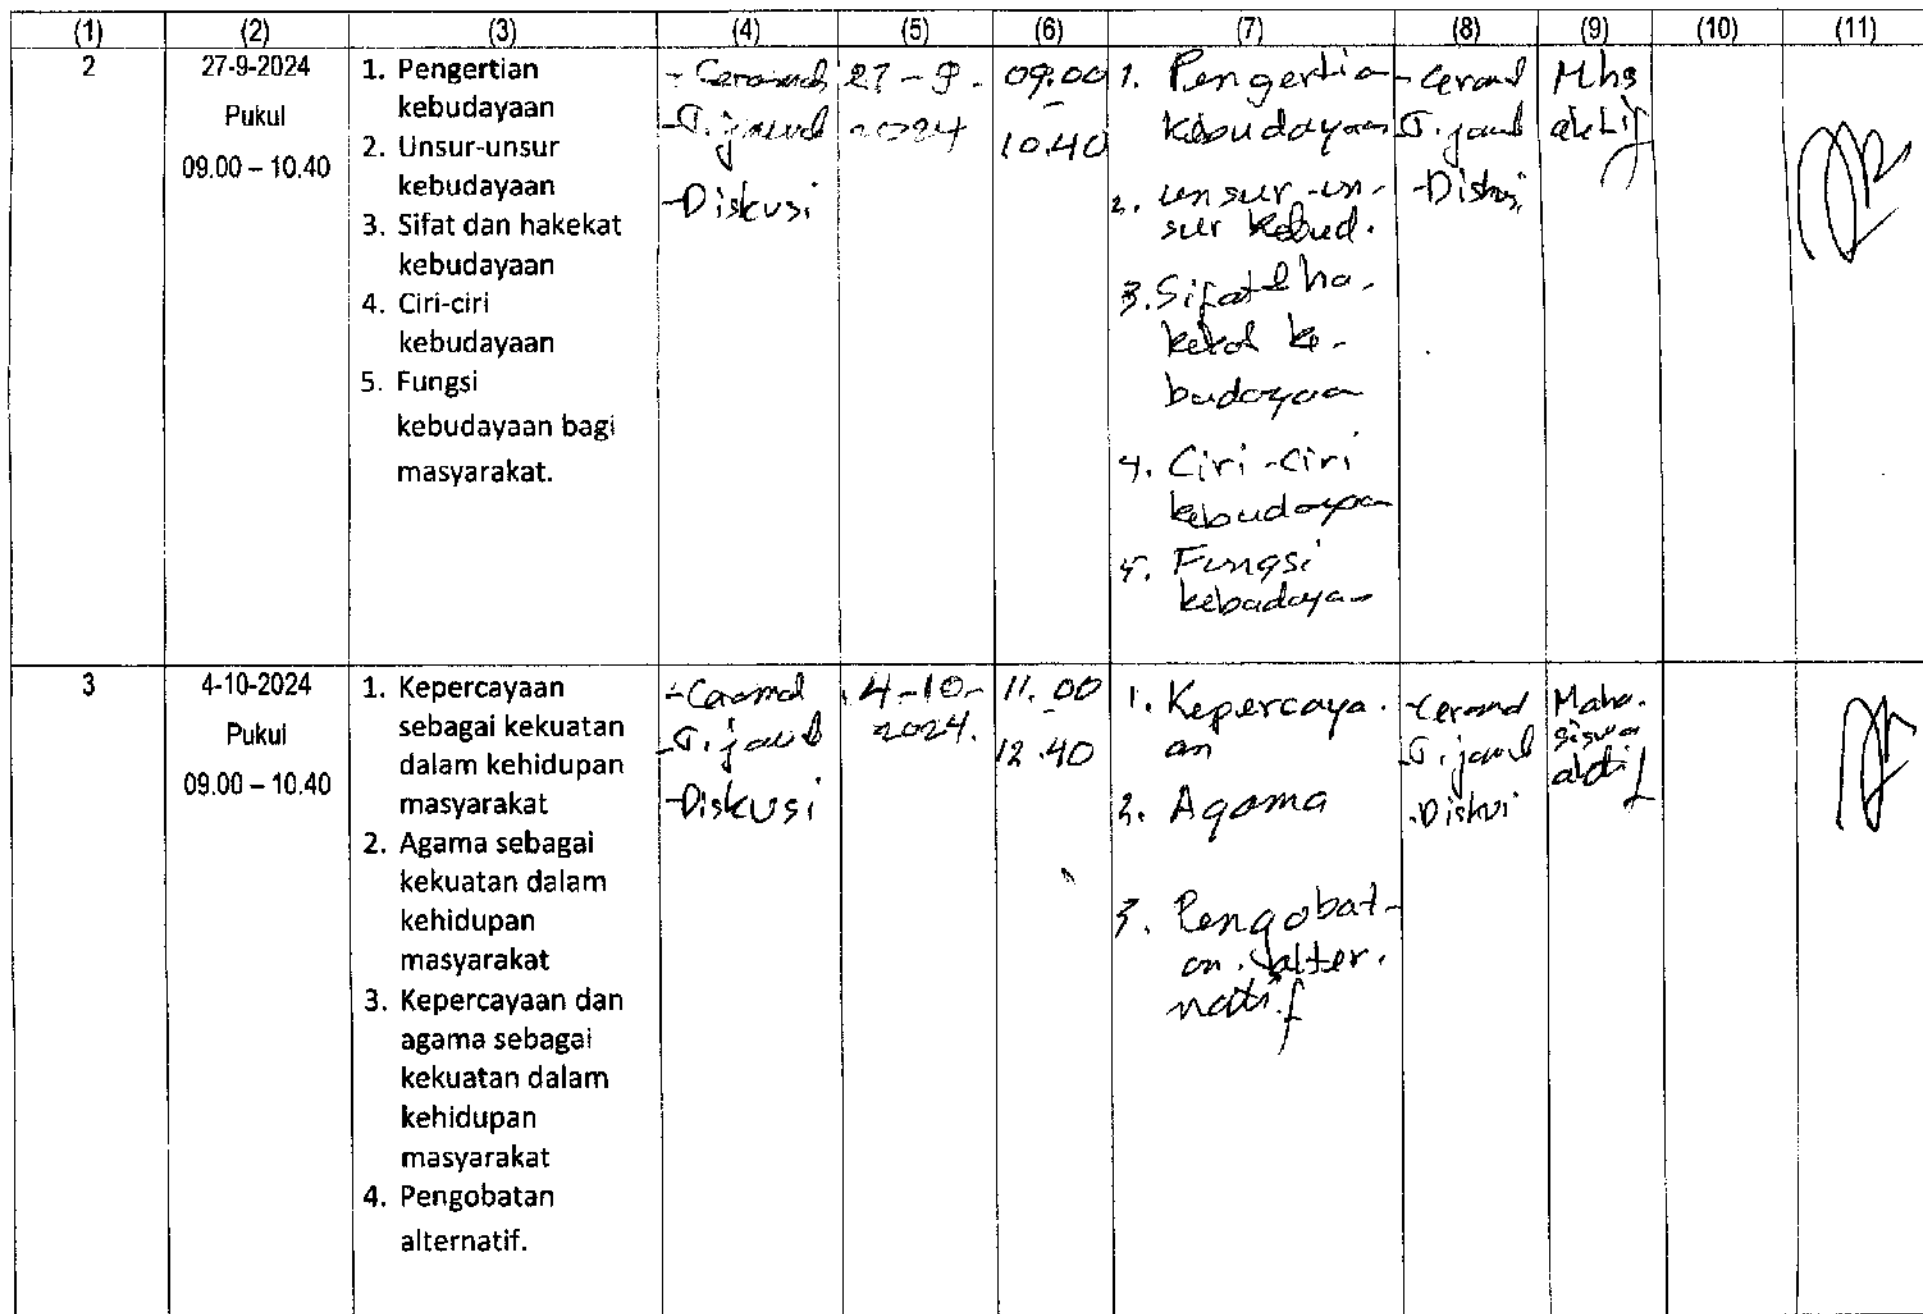 (1) (2) (3) (4) (5) (6) (7) (8) (9) (10) (11)
2
27-9-2024
Pukul
09.00 – 10.40
1. Pengertian
kebudayaan
2. Unsur-unsur
kebudayaan
3. Sifat dan hakekat
kebudayaan
4. Ciri-ciri
kebudayaan
5. Fungsi
kebudayaan bagi
masyarakat.
- Ceramah
-T. jawab
-Diskusi
27-9-
2024
09.00
-
10.40
1. Pengertia
kebudayaan
2. unsur-un-
sur kebud.
3. Sifat & ha-
kekat ke-
budayaan
4. Ciri-ciri
kebudayaan
5. Fungsi
kebudayaan
- Ceramah
T. jawab
-Diskusi
Mhs
aktif
3
4-10-2024
Pukul
09.00 – 10.40
1. Kepercayaan
sebagai kekuatan
dalam kehidupan
masyarakat
2. Agama sebagai
kekuatan dalam
kehidupan
masyarakat
3. Kepercayaan dan
agama sebagai
kekuatan dalam
kehidupan
masyarakat
4. Pengobatan
alternatif.
-Ceramah
-T. jawab
-Diskusi
4-10-
2024.
11.00
-
12.40
1. Kepercaya-
an
2. Agama
3. Pengobat-
an alter-
natif
-Ceramah
-T. jawab
-Diskusi
Maha-
siswa
aktif